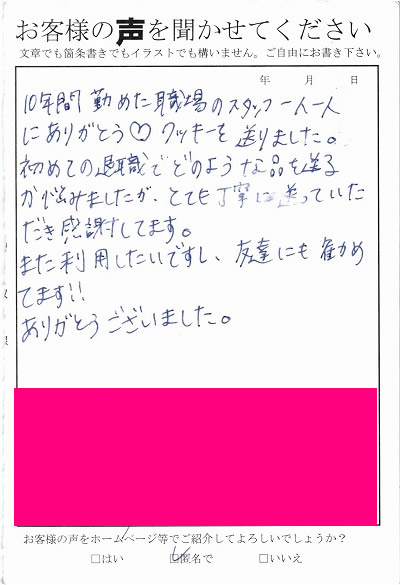 お客様の声を聞かせてください
文章でも箇条書きでもイラストでも構いません。ご自由にお書き下さい。
年 月 日
10年間勤めた職場のスタッフ一人一人
にありがとう♡クッキーを送りました。
初めての退職でどのような品を送る
か悩みましたが、とても丁寧に送っていた
だき感謝してます。
また利用したいですし、友達にも勧め
てます!!
ありがとうございました。
お客様の声をホームページ等でご紹介してよろしいでしょうか？
□はい ☑匿名で □いいえ